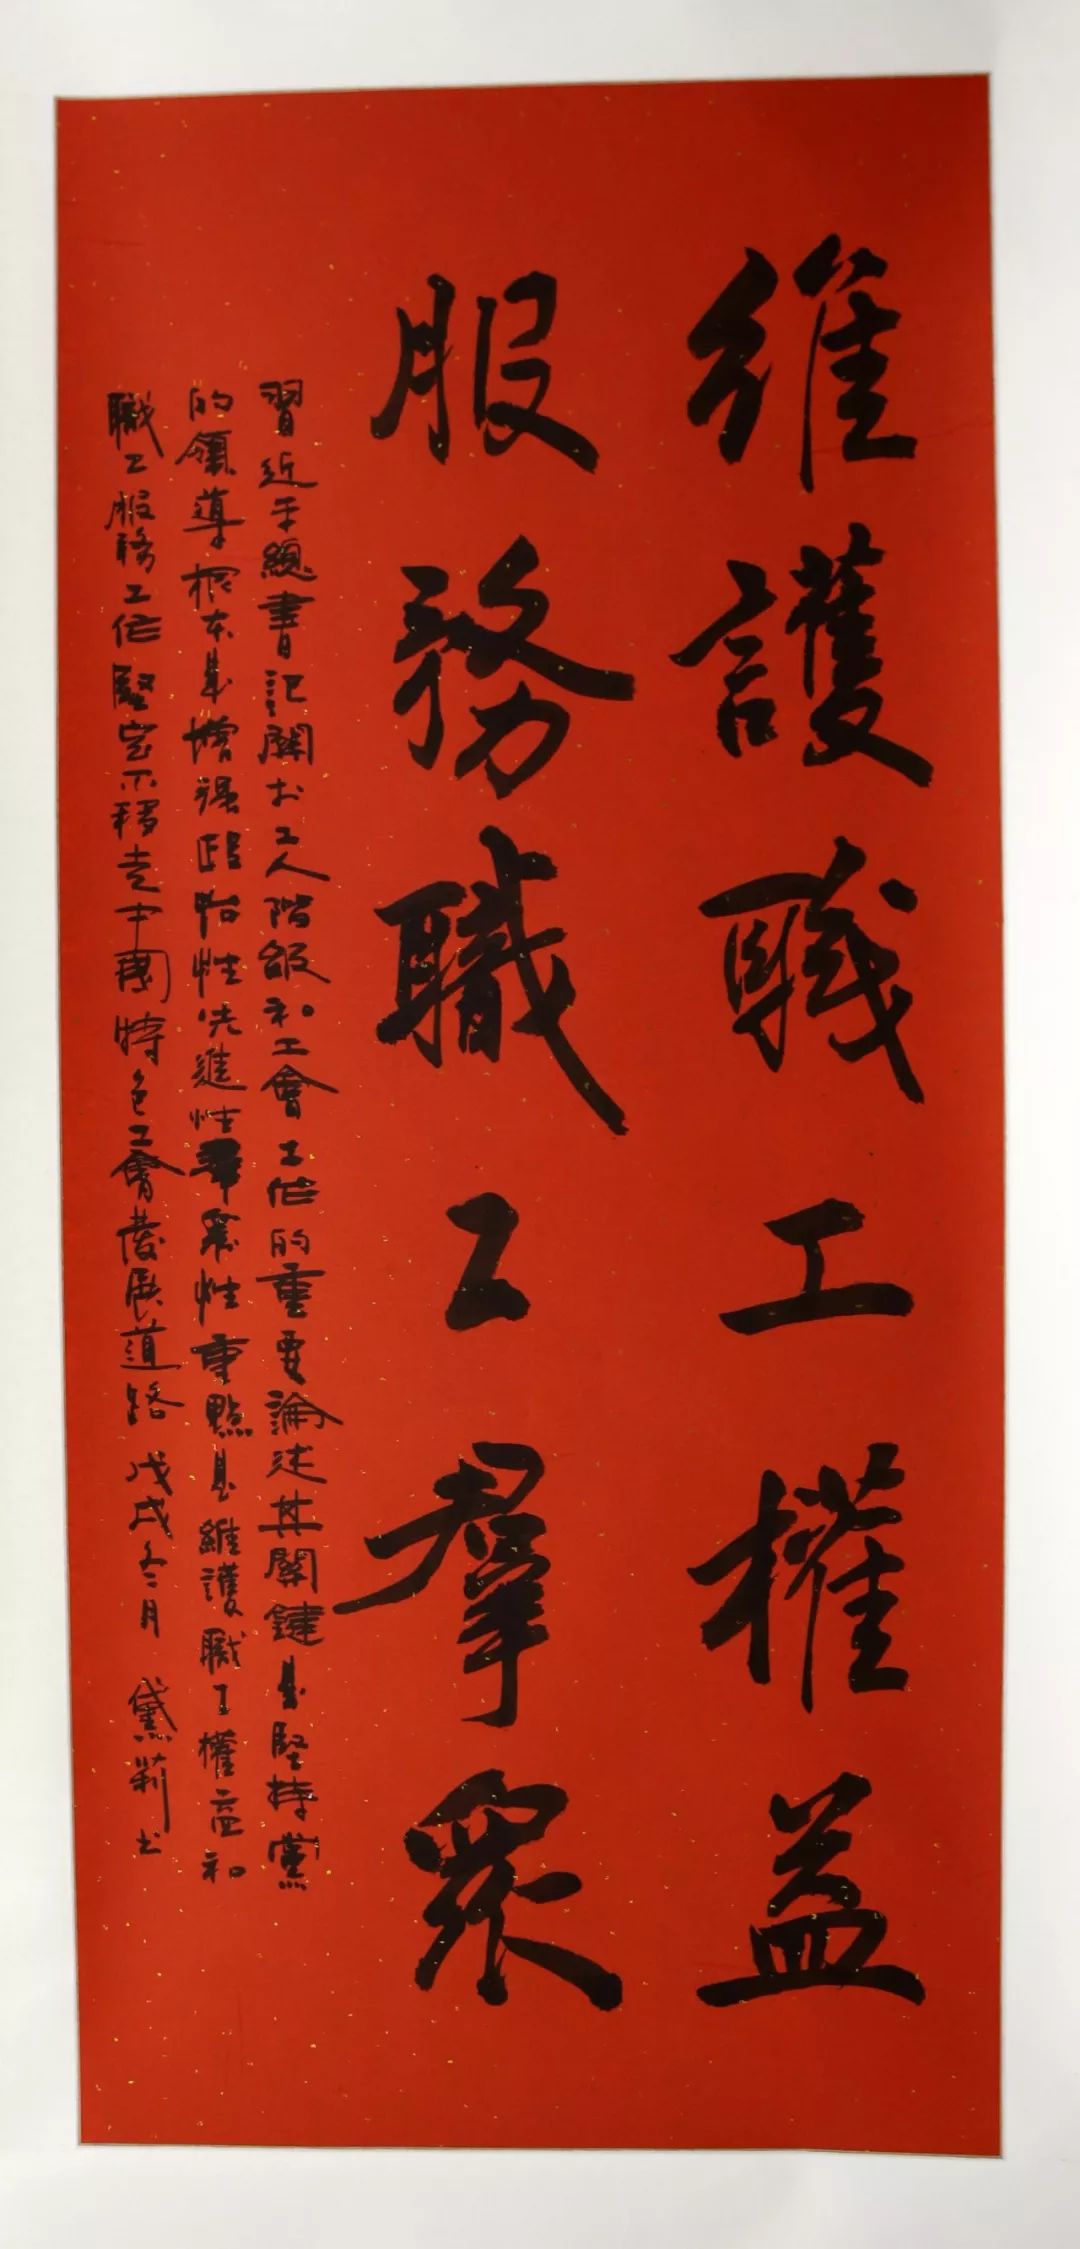 維護職工權益
服務職工羣衆
習近平總書記關於工人階級和工會工作的重要論述其關鍵是堅持黨
的領導根本是增強政治性先進性羣衆性重點是維護職工權益和
職工服務工作堅定不移走中國特色工會發展道路 戊戌冬月 黛莉书